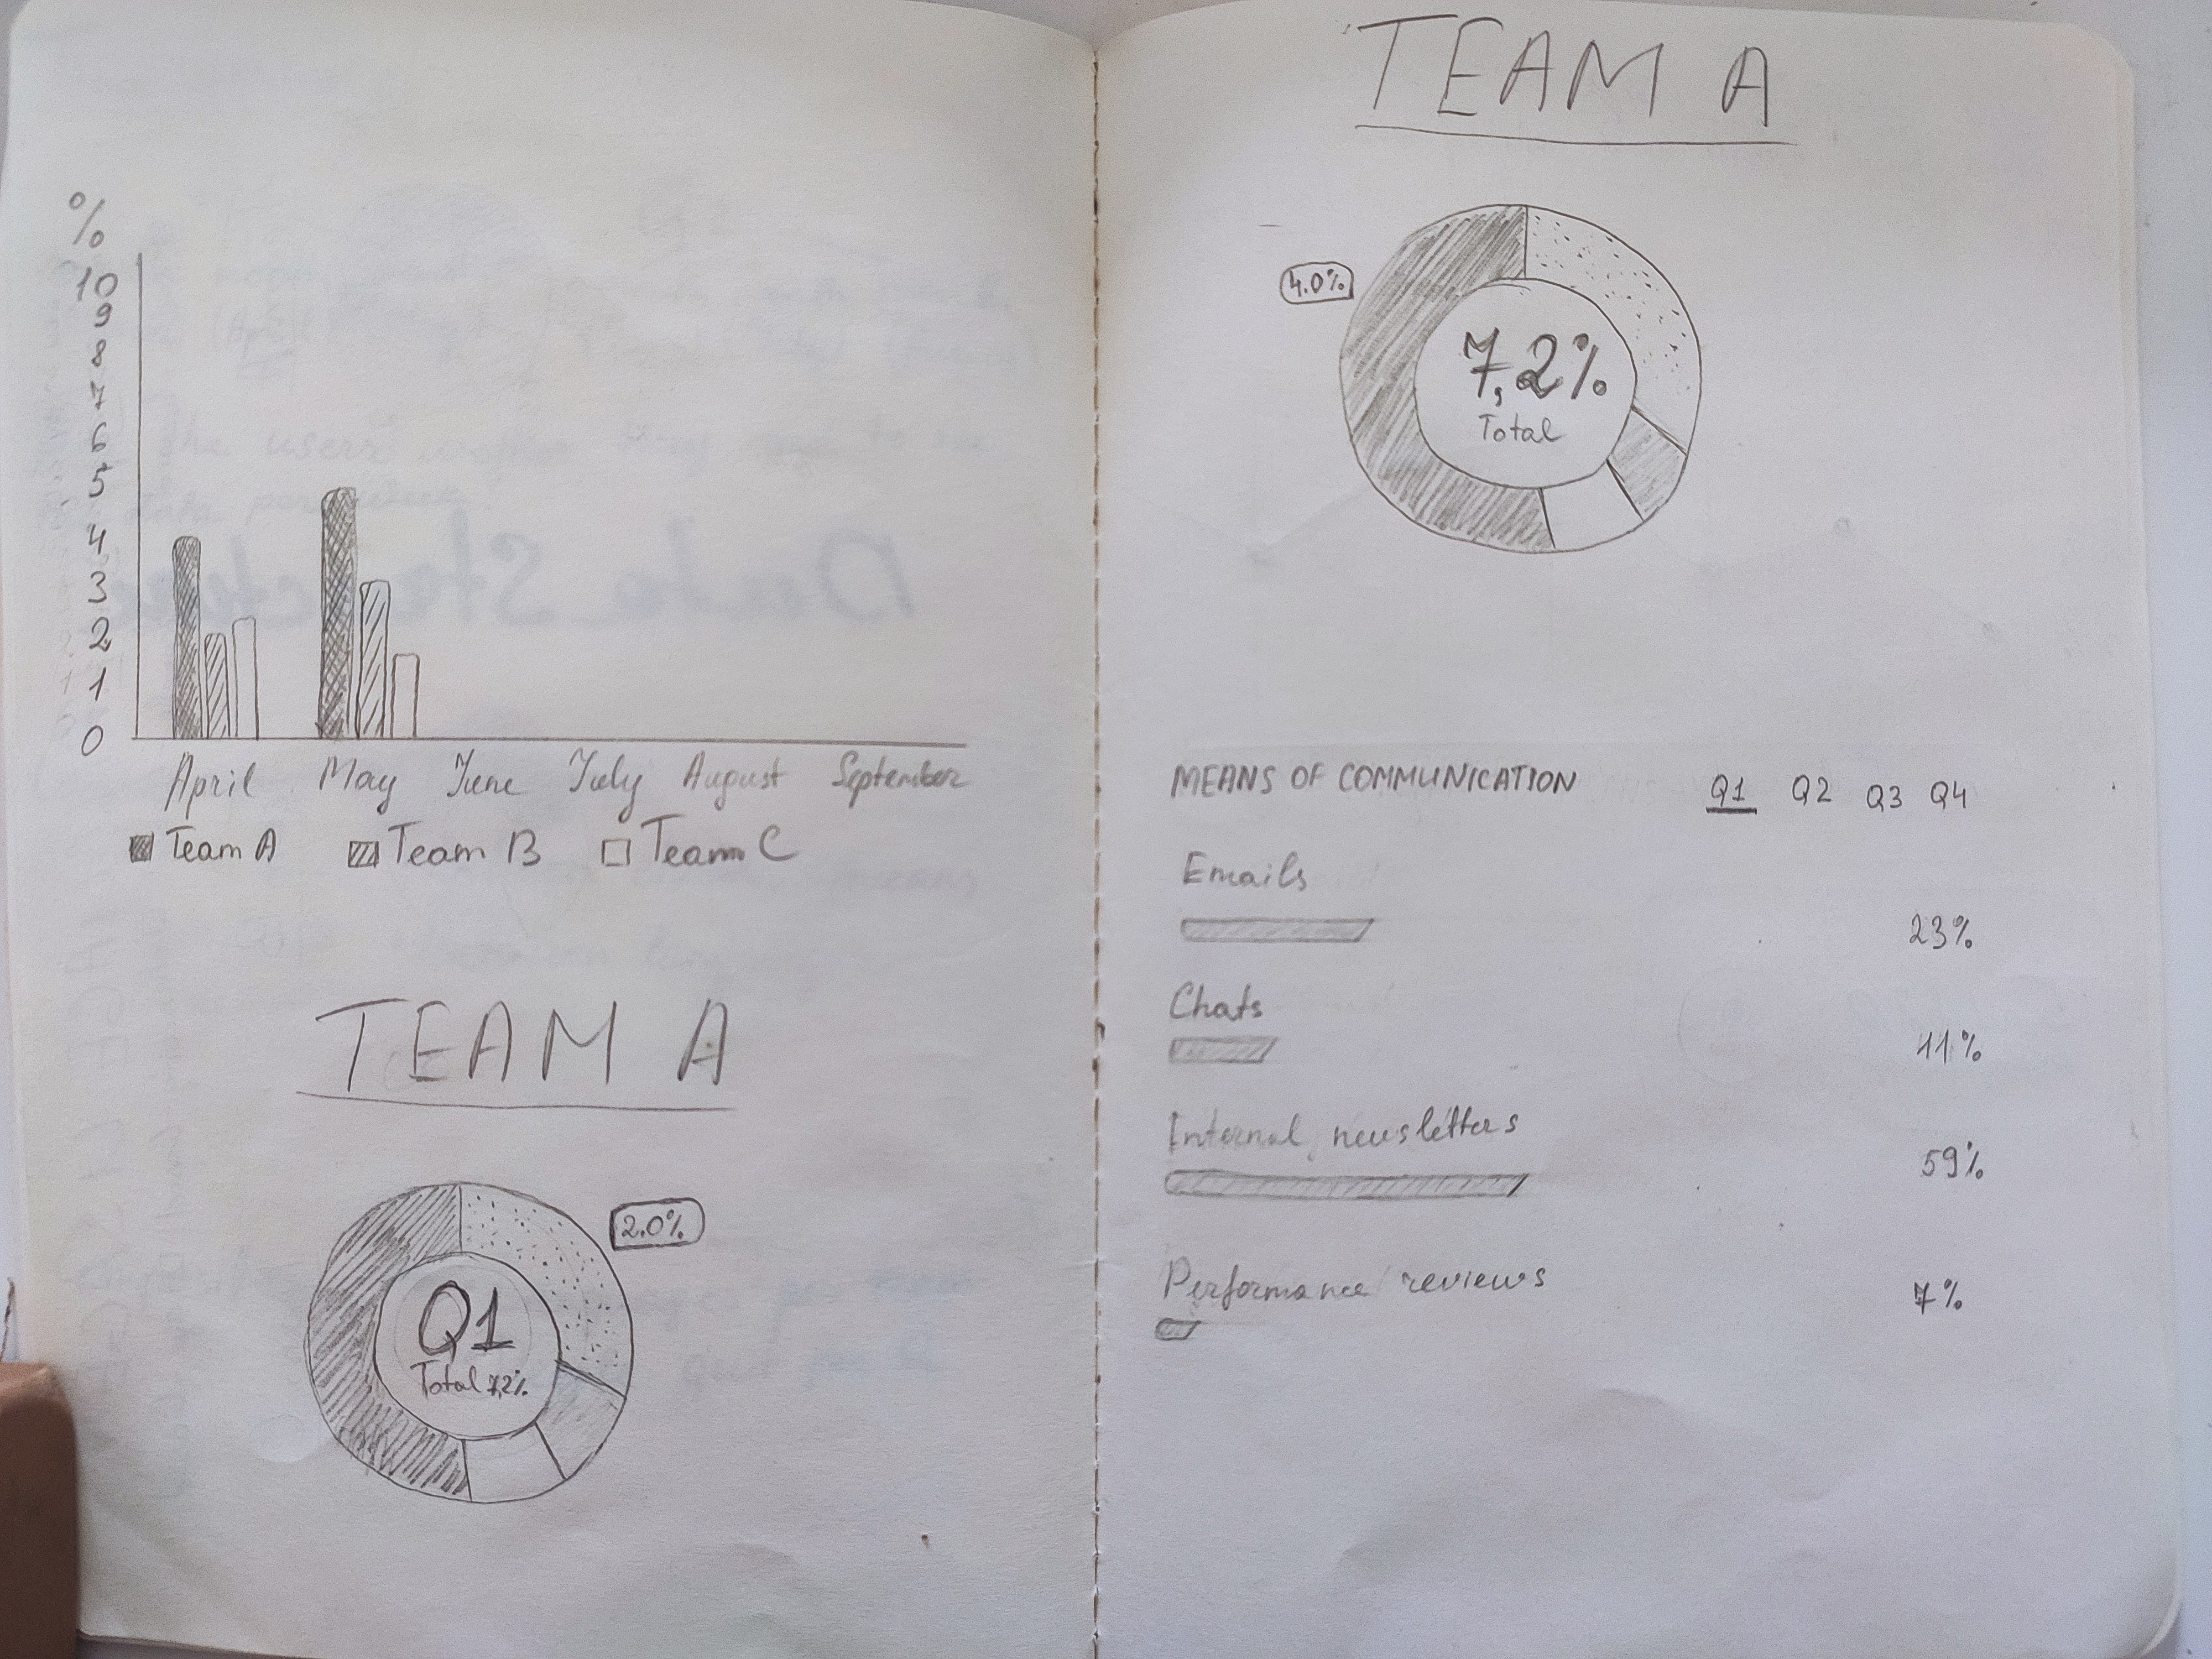 %
10
9
8
7
6
5
4
3
2
1
0
April May June July August September
Team A Team B Team C
TEAM A
2.0%
Q1
Total 7,2%
TEAM A
4.0%
7,2%
Total
MEANS OF COMMUNICATION Q1 Q2 Q3 Q4
Emails
23%
Chats
11%
Internal newsletters
59%
Performance reviews
7%